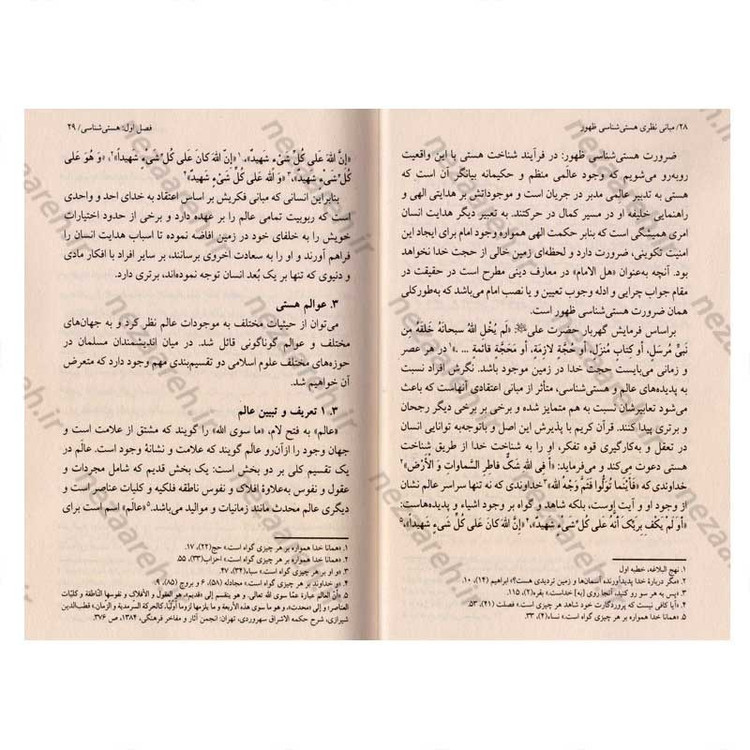 ۲۸/ مبانی نظری هستی‌شناسی ظهور
ضرورت هستی‌شناسی ظهور: در فرآیند شناخت هستی با این واقعیت
روبه‌رو می‌شویم که وجود عالمی منظم و حکیمانه بیانگر آن است که
هستی به تدبیر عالمی مدبر در جریان است و موجوداتش بر هدایتی الهی و
راهنمایی خلیفه او در مسیر کمال در حرکتند. به تعبیر دیگر هدایت انسان
امری همیشگی است که بنابر حکمت الهی همواره وجود امام برای ایجاد این
امنیت تکوینی، ضرورت دارد و لحظه‌ای زمین خالی از حجت خدا نخواهد
بود. آنچه به‌عنوان «هل الامام» در معارف دینی مطرح است در حقیقت در
مقام جواب چرایی و ادله وجوب تعیین و یا نصب امام می‌باشد که به‌طورکلی
همان ضرورت هستی‌شناسی ظهور است.
براساس فرمایش گهربار حضرت علی «لَم يُخْلِ اللهُ سبحانَهُ خَلقَهُ مِن
نَبيٍّ مُرسَلٍ، أو كتابٍ مُنزَلٍ، أو حُجَّةٍ لازِمَةٍ، أو مَحَجَّةٍ قائمَةٍ ... »۱ در هر عصر
و زمانی می‌بایست حجت خدا در جامعه وجود داشته باشد. نگرش افراد نسبت
به پدیده‌های عالم و هستی‌شناسی، متأثر از مبانی اعتقادی آنهاست که باعث
می‌شود تعابیرشان نسبت به هم متمایز شده و برخی بر برخی دیگر رجحان
و برتری پیدا کنند. قرآن کریم با پذیرش این اصل و باتوجه‌به توانایی انسان
در تعقل و به‌کارگیری قوه تفکر، او را به شناخت خدا از طریق شناخت
هستی دعوت می‌کند و می‌فرماید: «أَ فِي اللهِ شَكٌّ فاطِرِ السَّماواتِ وَ الْأَرْضِ»۲
خداوندی که «فَأَيْنَما تُوَلُّوا فَثَمَّ وَجْهُ اللهِ»۳ خداوندی که نه تنها سراسر عالم نشان
از وجود او و آیت اوست، بلکه شاهد و گواه بر وجود اشیاء و پدیده‌هاست:
«أَوَ لَمْ يَكْفِ بِرَبِّكَ أَنَّهُ عَلى كُلِّ شَيْءٍ شَهِيدٌ»۴، «إِنَّ اللهَ كانَ عَلى كُلِّ شَيْءٍ شَهِيداً»۵،
۱. نهج البلاغه، خطبه اول
۲. «مگر دربارهٔ خدا پدیدآورنده آسمان‌ها و زمین تردیدی هست؟» ابراهیم (۱۴)، ۱۰.
۳. «پس به هر سو رو کنید، آنجا روی [به] خداست.» بقره(۲)، ۱۱۵.
۴. «آیا کافی نیست که پروردگارت خود شاهد هر چیزی است» فصلت (۴۱)، ۵۳.
۵. «همانا خدا همواره بر هر چیزی گواه است.» نساء(۴)، ۳۳
فصل اول: هستی‌شناسی/ ۲۹
«إِنَّ اللهَ عَلى كُلِّ شَيْءٍ شَهِيدٌ»۱، «إِنَّ اللهَ كانَ عَلى كُلِّ شَيْءٍ شَهِيداً»۲، «وَ هُوَ عَلى
كُلِّ شَيْءٍ شَهِيدٌ»۳، «وَ اللهُ عَلى كُلِّ شَيْءٍ شَهِيدٌ».۴
بنابراین انسانی که مبانی فکریش بر اساس اعتقاد به خدای احد و واحدی
است که ربوبیت تمامی عالم را بر عهده دارد و برخی از حدود اختیارات
خویش را به خلفای خود در زمین افاضه نموده تا اسباب هدایت انسان را
فراهم آورند و او را به سعادت اخروی برسانند، بر سایر افراد با افکار مادی
و دنیوی که تنها بر یک بُعد انسان توجه نموده‌اند، برتری دارد.
۳. عوالم هستی
می‌توان از حیثیات مختلف به موجودات عالم نظر کرد و به جهان‌های
مختلف و عوالم گوناگونی قائل شد. در میان اندیشمندان مسلمان در
حوزه‌های مختلف علوم اسلامی دو تقسیم‌بندی مهم وجود دارد که متعرض
آن خواهیم شد.
۳. ۱ تعریف و تبیین عالم
«عالم» به فتح لام، «ما سوی الله» را گویند که مشتق از علامت است و
جهان وجود را ازآن‌رو عالَم گویند که علامت و نشانهٔ وجود است. عالَم در
یک تقسیم کلی بر دو بخش است: یک بخش قدیم که شامل مجردات و
عقول و نفوس به‌علاوهٔ افلاک و نفوس ناطقه فلکیه و کلیات عناصر است و
دیگری عالم محدث مانند زمانیات و موالید می‌باشد.۵ «عالَم» اسم است برای
۱. «همانا خدا همواره بر هر چیزی گواه است.» حج(۲۲)، ۱۷.
۲. «همانا خدا همواره بر هر چیزی گواه است.» احزاب(۳۳)، ۵۵.
۳. «و او بر هر چیزی گواه است.» سباء(۳۴)، ۴۷.
۴. «و خداوند بر هر چیزی گواه است.» مجادله (۵۸)، ۶ و بروج (۸۵)، ۹.
۵. «أنّ العالم عبارة عمّا سوى الله تعالى. و هو ينقسم إلى «قديم»، هو العقول و الأفلاك و نفوسها النّاطقة و كلّيات
العناصر؛ و إلى «محدث»، و هو ما سوى هذه الأربعة و ما يلزمها لزوما أوليّا، كالحركة السرمدية و الزمان.» قطب‌الدین
شیرازی، شرح حکمه الاشراق سهروردی، تهران: انجمن آثار و مفاخر فرهنگی، ۱۳۸۴، ص ۳۷۶.
nezaareh.ir